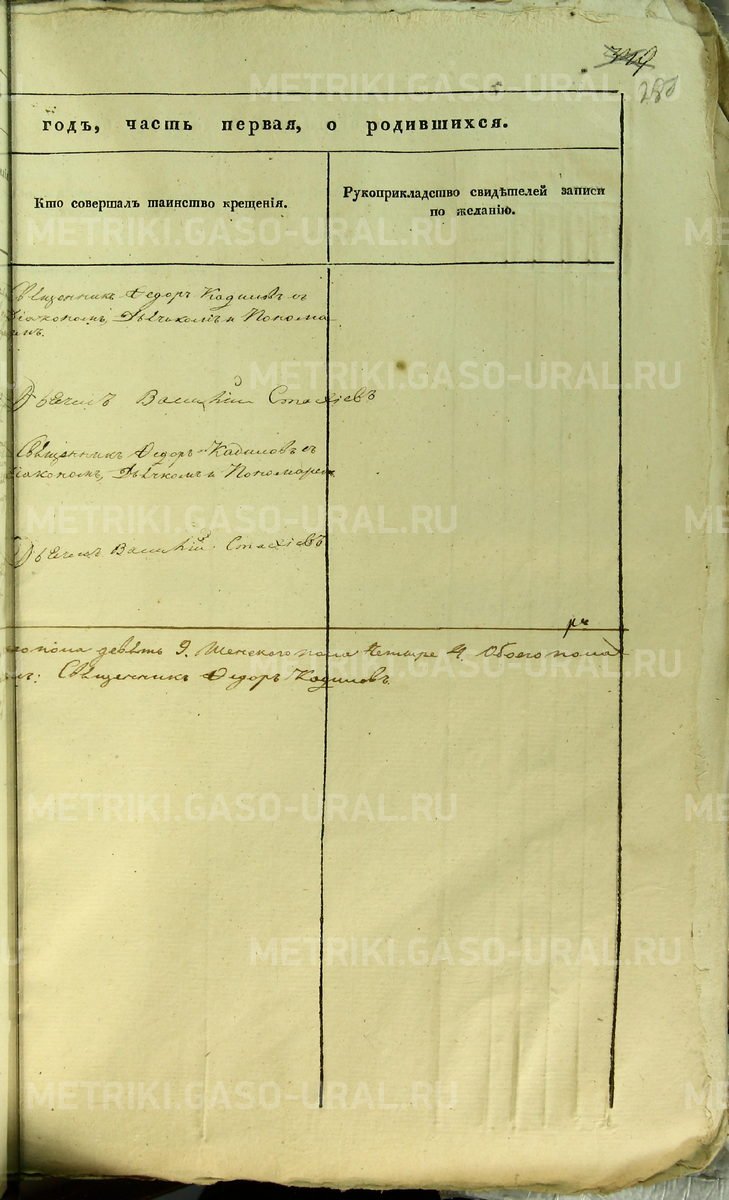 280
годъ, часть первая, о родившихся.
Кто совершалъ таинство крещенія.
Рукоприкладство свидѣтелей записи
по желанію.
Священникъ Ѳедоръ Кадиловъ съ
діакономъ, Дьячкомъ и Понома
Дьячекъ Василій
Священникъ Ѳедоръ Кадиловъ съ
діакономъ, Дьячкомъ и Пономаремъ
Дьячекъ Василій
пола девять 9. Женскаго пола четыре 4. Обоего пола
Священникъ Ѳедоръ Кадиловъ.
METRIKI.GASO-URAL.RU